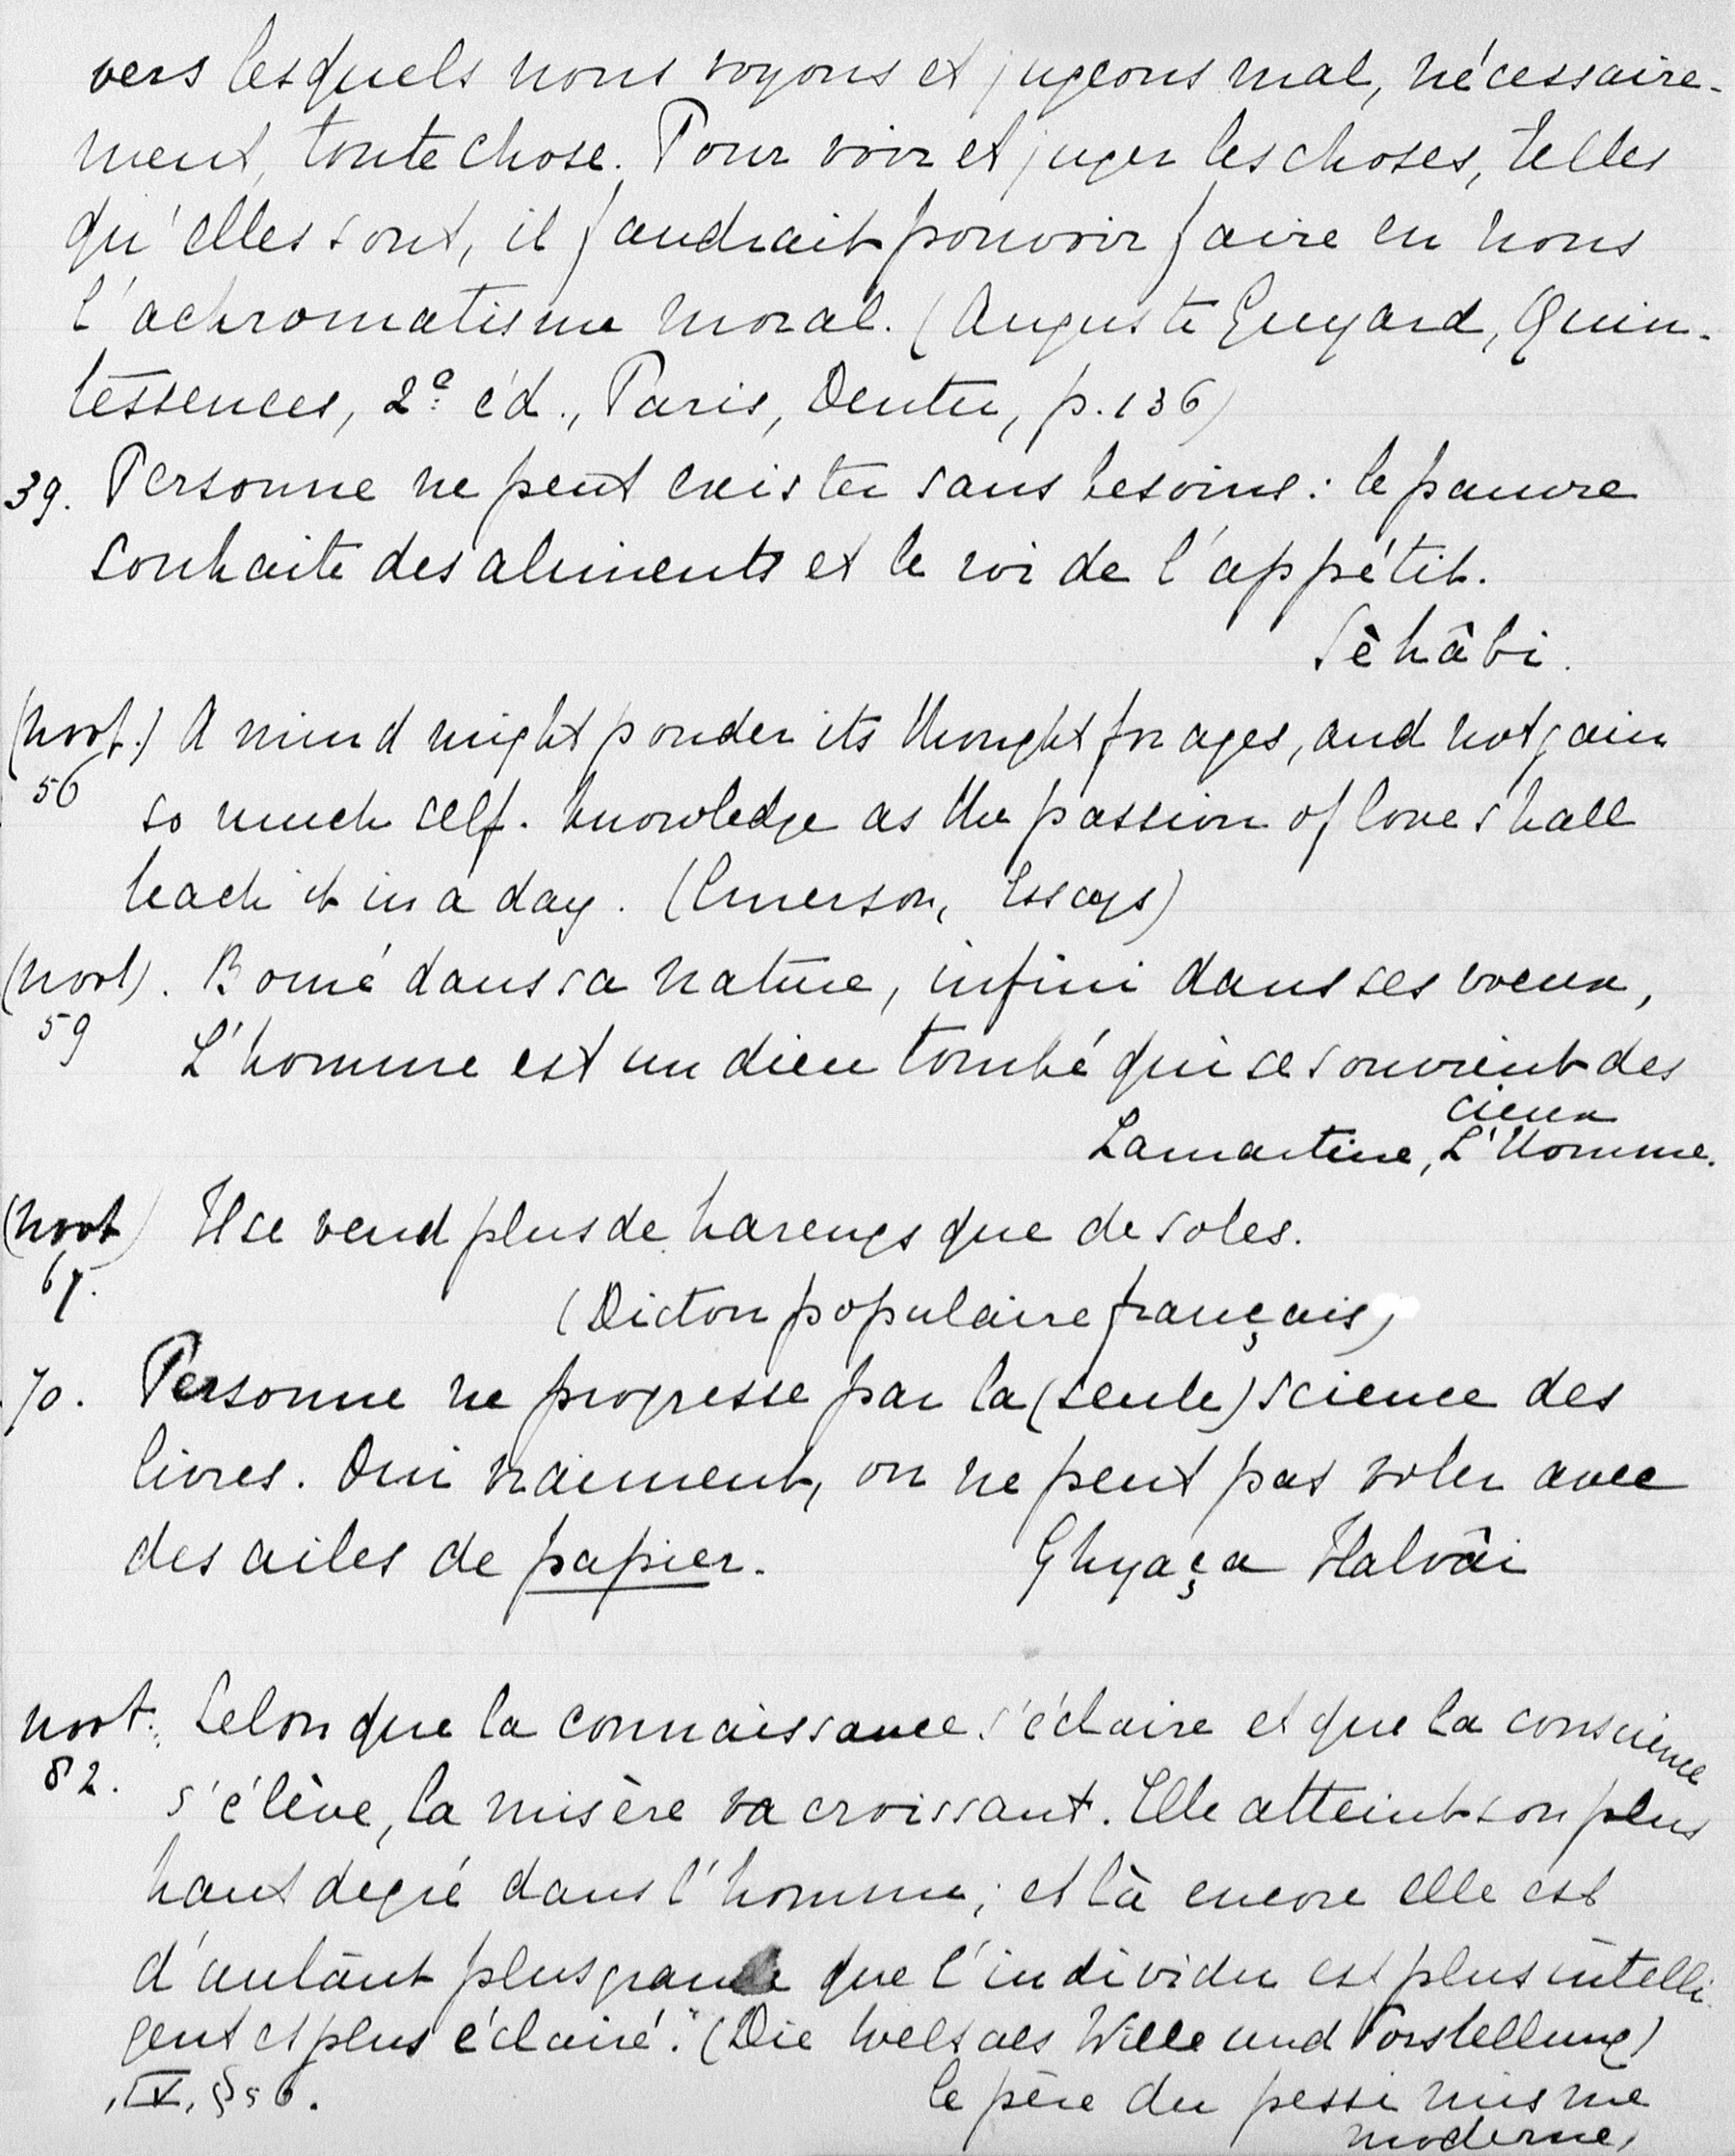 vers lesquels nous voyons et jugeons mal, nécessaire-
ment, toute chose. Pour voir et juger les choses, telles
qu'elles sont, il faudrait pouvoir faire en nous
l'achromatisme moral. (Auguste Guyard, Quin-
tessences, 2e éd., Paris, Dentu, p. 136)
39. Personne ne peut exister sans besoins : le pauvre
souhaite des aliments et le roi de l'appétit.
Sèhâbi.
(noot.) A mind might ponder its thought for ages, and not gain
56 so much self-knowledge as the passion of love shall
teach it in a day. (Emerson, Essays)
(noot). Borné dans sa nature, infini dans ses vœux,
59 L'homme est un dieu tombé qui se souvient des
cieux
Lamartine, L'Homme.
(noot) Il se vend plus de harengs que de soles.
67.
(Dicton populaire français)
70. Personne ne progresse par la (seule) science des
livres. Oui vraiment, on ne peut pas voler avec
des ailes de papier. Ghyaça Halvâi
noot. Selon que la connaissance s'éclaire et que la conscience
82. s'élève, la misère va croissant. Elle atteint son plus
haut degré dans l'homme ; et là encore elle est
d'autant plus grande que l'individu est plus intelli-
gent et plus éclairé." (Die Welt als Wille und Vorstellung)
, IV, § 56. le père du pessimisme
moderne,